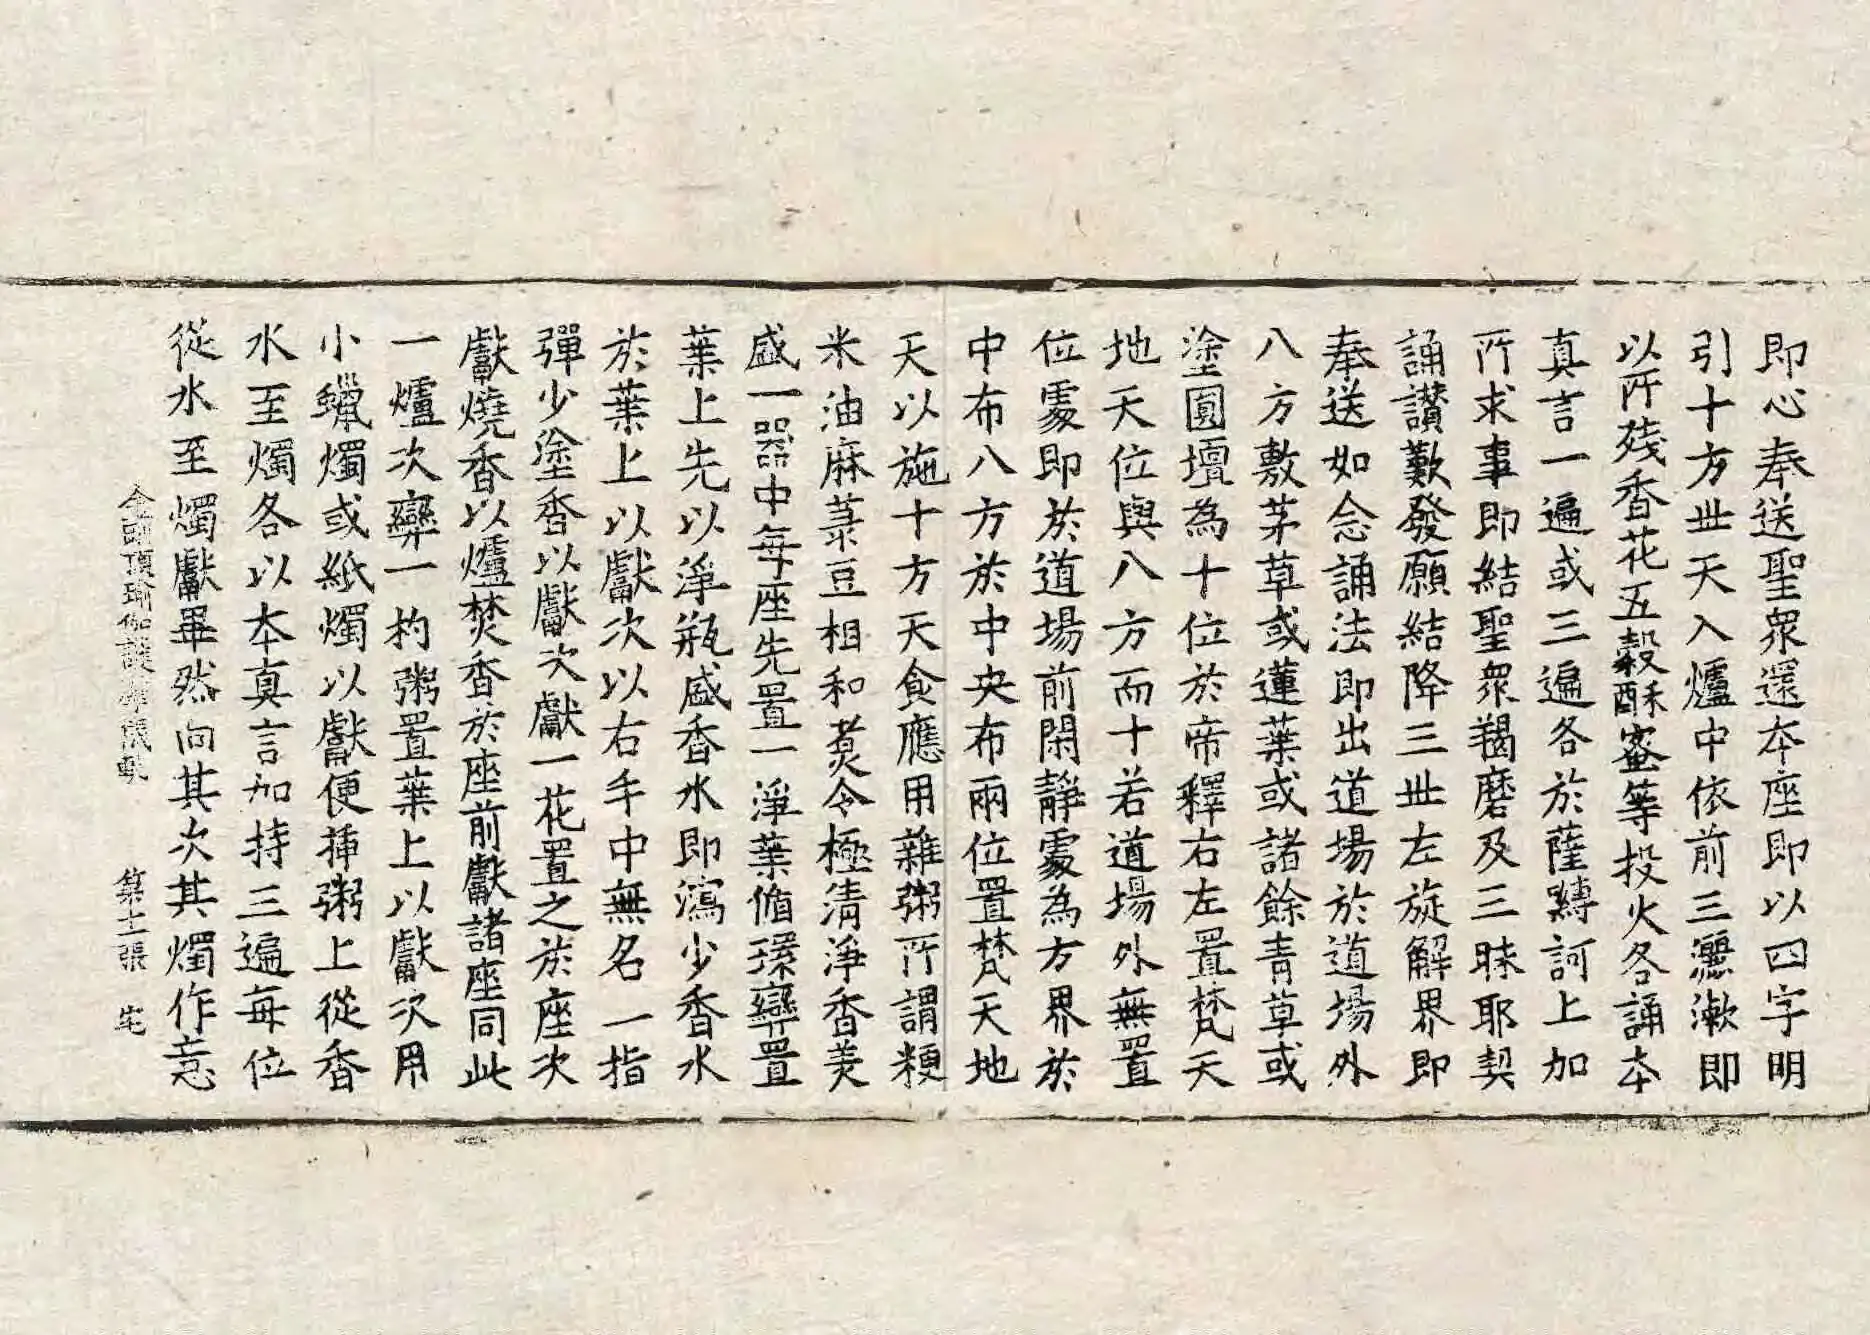 即心奉送聖眾還本座即以四字明
引十方丗天入爐中依前三灑漱即
以所殘香花五穀酥蜜等投火各誦本
真言一遍或三遍各於薩嚩訶上加
所求事即結聖眾羯磨及三昧耶契
誦讃歎發願結降三丗左旋解界即
奉送如念誦法即出道場於道場外
八方敷茅草或蓮葉或諸餘青草或
塗圓壇為十位於帝釋右左置梵天
地天位與八方而十若道場外無置
位處即於道場前閑靜處為方界於
中布八方於中央布兩位置梵天地
天以施十方天食應用雜粥所謂粳
米油麻菉豆相和煑令極清淨香美
盛一器中每座先置一淨葉脩環臠置
葉上先以淨瓶盛香水即瀉少香水
於葉上以獻次以右手中無名一指
彈少塗香以獻次獻一花置之於座次
獻燒香以爐焚香於座前獻諸座同此
一爐次臠一杓粥置葉上以獻次用
小蠟燭或紙燭以獻便揷粥上從香
水至燭各以本真言加持三遍每位
從水至燭獻畢然向其次其燭作意
金剛頂瑜伽護摩儀軌 第十張 宅